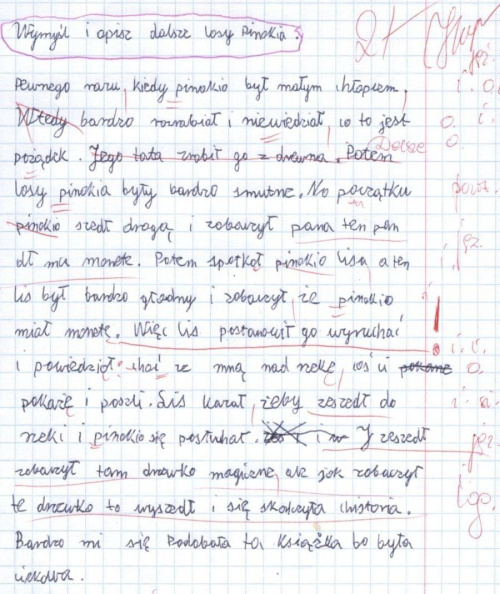 Wymyśl i opisz dalsze losy Pinokia 2+
jęz.
Pewnego razu, kiedy pinokio był małym chłopcem, i. o.
Wtedy bardzo rozrabiał i niewiedział, co to jest o. i.
Dalsze
pożądek. Jego tata zrobił go z drewna. Potem o.
losy pinokia były bardzo smutne. No początku
pinokio szedł drogą i zobaczył pana ten pan jęz.
dł mu monete. Potem spotkoł pinokio lisa a ten i.
lis był bardzo głodny i zobaczył, że pinokio i.
miał monete. Więc lis postanowił go wyruchać !
i powiedział: chać ze mną nad rzekę, coś ci pokaze o.
pokarzę i poszli. Lis kazał, żeby zeszedł do
rzeki i pinokio się posłuchał. i J zeszedł jęz.
zobaczył tam drzewko magiczne, ale jak zobaczył
te drzewko to wyszedł i się skończyła chistoria. i go.
Bardzo mi się Podobała ta książka bo była
ciekawa.